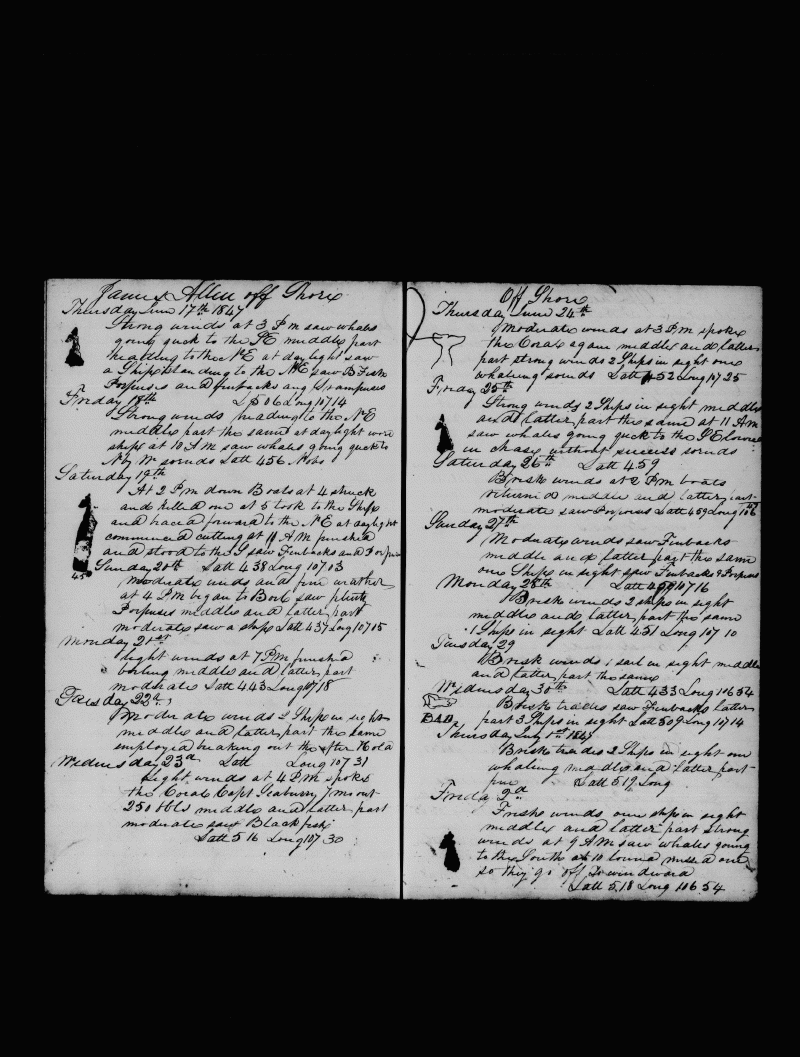 James Allen off Shore
Thursday June 17th 1847
Strong winds at 3 P m saw whales
going quck to the SE middle part
heading to the NE at day light saw
a Ship standing to the NE saw B Fish
Porpuses and finbacks and Grampuses
Friday 18th L 506 Long 107 14
Strong winds heading to the NE
middle part the same at day light wore
ships at 10 A M saw whales going quck to
N by W sounds Latt 456 No obs
Saturday 19th
At 2 P M down Boats at 4 struck
and killed one at 5 took to the Ship
and braced forward to the NE at daylight
commenced cutting at 11 A M finished
and stood to the S saw Finbacks and Porpuses
45
Sunday 20th Latt 438 Long 107 03
moderate winds and fine weather
at 4 P M began to Boil saw plenty
Porpuses middle and latter part
moderate saw a ship Latt 437 Long 107 05
Monday 21st
light winds at 7 P M finished
boiling middle and latter part
moderate Latt 443 Long 107 18
Tuesday 22d
Moderate winds 2 Ships in sight
middle and latter part the same
employed breaking out the after Hold
Wednesday 23d Latt Long 107 31
Light winds at 4 P M spoke
the Coral Capt Seabury 7 ms out
250 bbls middle and latter part
moderate saw Black fish
Latt 5 16 Long 107 30
Off Shore
Thursday June 24th
Moderate winds at 3 P M spoke
the Coral again middle and latter
part strong winds 2 Ships in sight one
whaling sounds Latt 52 Long 107 25
Friday 25th
Strong winds 2 Ships in sight middle
and latter part the same at 11 A M
saw whales going quck to the SE lowered
in chase without success sounds
Saturday 26th Latt 459
Brisk winds at 2 P m boats
returned middle and latter part
moderate saw Porpuses Latt 459 Long 106
Sunday 27th
Moderate winds saw Finbacks
middle and latter part the same
one Ships in sight saw Finbacks & Porpuses
Monday 28th Latt 107 16
Brisk winds 2 ships in sight
middle and latter part the same
1 Ships in sight Latt 451 Long 107 10
Tuesday 29
Brisk winds 1 sail in sight middle
and latter part the same
Wednesday 30th Latt 433 Long 106 54
Brisk trades saw Finbacks latter
BAD part 3 Ships in sight Latt 509 Long 107 14
Thursday July 1st 1847
Brisk trades 2 Ships in sight one
whaling middle and latter part
fine Latt 519 Long
Friday 2d
Fresh winds one ship in sight
middle and latter part strong
winds at 9 A M saw whales going
to the South at 10 lowered missed one
so they go off to windward
Latt 5,18 Long 106 54